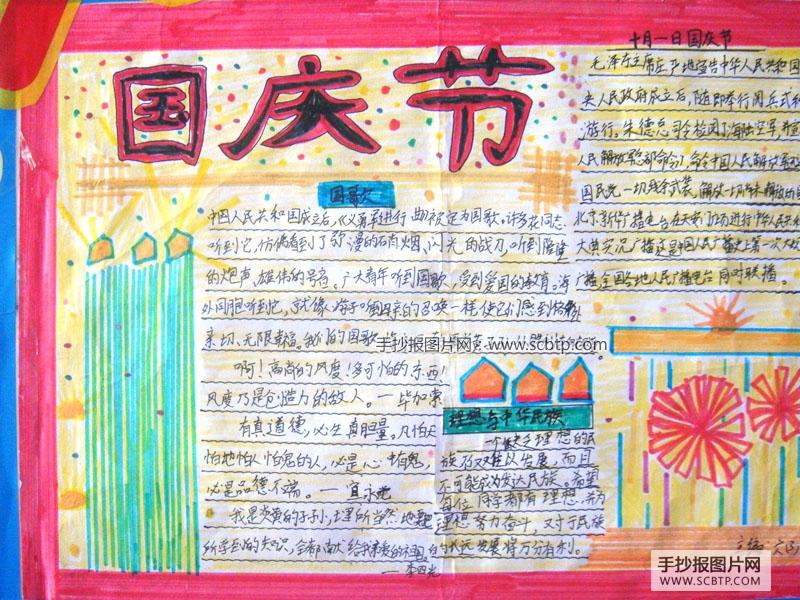 国庆节
国哥欠
中四人民共和国成立后，《义勇军进行曲被定为国歌。许多花同志
听到它，仿佛看到了弥漫的硝烟、闪光的战刀，听到隆隆
的炮声，雄伟的号音。广大青年听到国歌，受到爱国的教育。海
外同胞听到它，就像游子听到母亲的召唤一样，使它们感到格外
亲切、无限幸福。我们的国歌
啊！高尚的风度！多可怕的东西！
风度乃是创造力的敌人。——毕加索
有真道德，必生真胆量。凡怕天
怕地怕人怕鬼的人，必是心中有鬼，
必是品德不端。——宣永光
我是炎黄的子孙，理所当然地要把
所学到的知识，全部献给我亲爱的祖国。
——李四光
理想与中华民族
一个缺乏理想的民
族乃双难以发展，而且
不可能成为发达民族。希望
每位同学都有理想，为
理想努力奋斗，又寸于民族
的永远发展将万分有利。
十月一日国庆节
毛泽东主席庄严地宣告中华人民共和国
央人民政府成立后，随即举行阅兵式和
游行。朱德总司令检阅了海陆空军，并宣
人民解放军总部命令》，命令中国人民解放军
国民党一切残余武装，解放一切尚未解放的国
北京新华广播电台在天安门广场进行中华人民共和
大典实况广播这是中国人民广播史上第一次
广播全国各地人民广播电台同时联播。
手抄报图片网 www.scbtp.com
手抄报图片网
WWW.SCBTP.COM